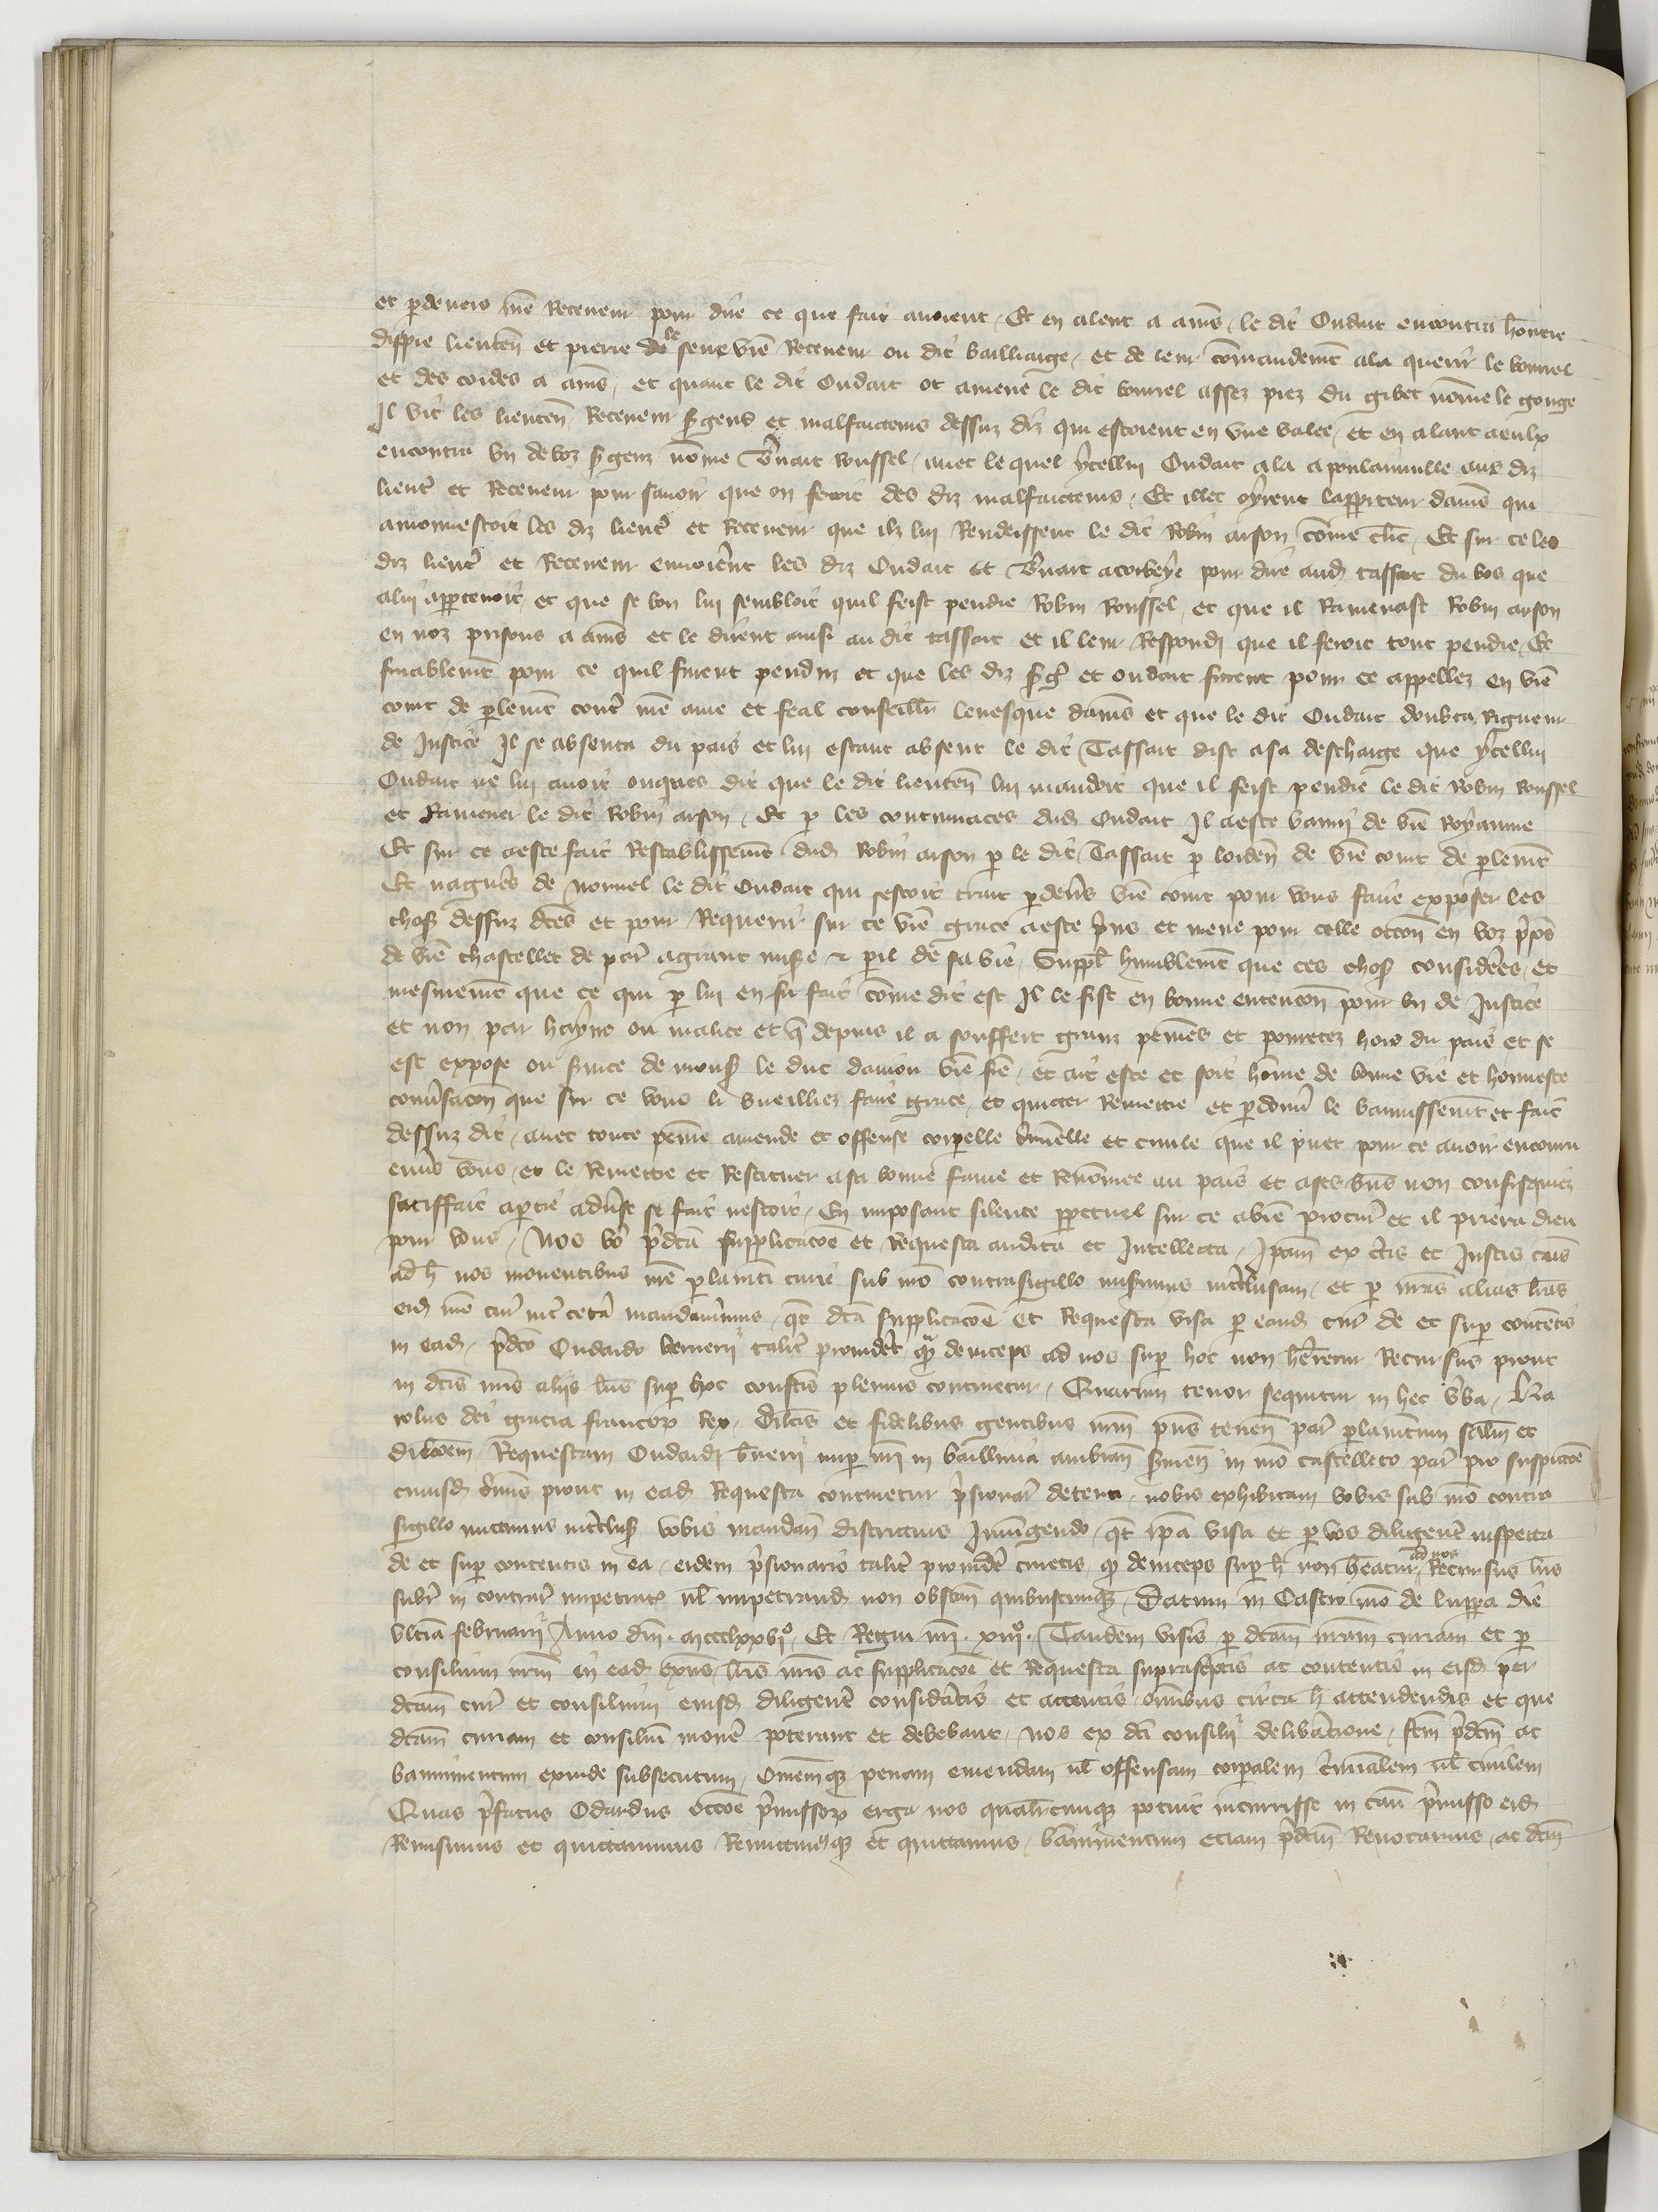 et pardevers nre Receveur pour dire ce que fait avoient, Et en alent a amiens, le dit Oudart encontra
dispre lieuten et pierre le sene vre Receveur ou dit bailliaige, et de leur commandement ala querir le bourrel
et des cordes a amiens, et quant le dit Oudart ot amene le dit bourrel assez prez du gibet nomme le gouge
Il vit les lieuten Receveur sergens et malfaicteurs dessuz diz qui estoient en une valee, et en alant a eulx
encontra un de voz sergenz nomme Bernart roussel, avec le quel ycellui Oudart ala a poulainville aus diz
lieuten et Receveur pour savoir que on feroit des diz malfaicteurs, Et illec oyrent lappriteur damiens qui
amonnestoit les diz lieuten et Receveur que ilz lui Rendeissent le dit Robin arson comme clerc, Et sur ce les
diz lieuten et Receveur envoierent les diz Oudart et Bernart a corbeye pour dire aud tassart du bos que
a lui appartenoit, et que se bon lui sembloit quil feist pendre Robin Roussel, et que il Ramenast Robin arson
en noz prisons a amiens et le dirent ainsi au dit tassart et il leur Respondi que il feroit tout pendre, Et
finablement pour ce quil furent penduz et que les diz sergens et oudart furent pour ce appellez en vre
court de parlement contre nre ame et feal conseiller levesque damiens et que le dit Oudart doubta Rigueur
de Justice Il se absenta du pais et lui estant absent le dit Tassart dist a sa descharge que ycellui
Oudart ne lui avoit onques dit que le dit lieuten lui mandoit que il feist pendre le dit Robin roussel
et Ramener le dit Robin arson, Et par les contumaces dud Oudart Il a este banni de vre Royaume
Et sur ce a este fait Restablissement dud Robin arson par le dit Tassart par lorden de vre court de parlement
Et nagueres de nouvel le dit Oudart qui sestoit trait pardevers vre court pour vous faire exposer les
choses dessuz dictes et pour Requerir sur ce vre grace a este prins et mene pour celle occon en voz prisons
de vre chastellet de paris a grant misere et peril de sa vie, Suppl humblement que ces choses considerees, et
mesmement que ce qui par lui en fu fait comme dit est Il le fist en bonne entencon pour bn de Justice
et non par hayne ou malice et que depuis il a souffert granz peines et povretez hors du pais et se
est expose ou service de mons le duc danjou vre frere, et ait este et soit homme de bonne vie et honneste
conversacon que sur ce vous li vueilliez faire grace, et quicter Remettre et pardonner le bannissement et fait
dessuz dit, avec toute peine amende et offense corporelle criminelle et civile que il puet pour ce avoir encouru
envers vous, et le Remettre et Restituer a sa bonne fame et Renommee au pais et a ses biens non confisquiez
satiffait a partie adverse se fait nestoit, En imposant silence perpetuel sur ce a vre procureur et il priera dieu
pour vous, Nos vero predictam supplicacione et Requesta audita et Intellecta, Ipsam ex certis et Justis causis
ad hoc nos moventibus nre parlamenti curie sub nro contrasigillo misimus interclusam, et per nras alias lras
eid nre curie inter cetera mandavimus, quod dicta supplicacione et Requesta visa per eand curiam de et super contentis
in ead, predicto Oudardo bernerii taliter provideret, quod deinceps ad nos super hoc non haberetur Recursus prout
in dictis nris aliis lris super hoc confectis plenius continetur, Quarum tenor sequitur in hec verba, Ka
rolus dei gracia francorum Rex, Dilectis et fidelibus gentibus nrm pns tenen par parlamentum salm et
dilcoem, Requestam Oudardi Bernerii nuper nri in baillivia ambian servien in nro castelleto par pro suspicione
cuiusd criminis prout in ead Requesta continetur prisionar detenti, nobis exhibitam vobis sub nro contra
sigillo mittimus interclus vobis mandan districtius Iniungendo, quod ipsa visa et per vos diligenter inspecta
de et super contentis in ea, eidem prisionario taliter providere curetis, quod deinceps super hoc non habeatur ad nos Recursus lris
subr in contrar impetratis vel impetrand non obstan quibuscumque, Datum in Castro nro de luppara die
ultima februarii Anno dni mccclxxvio, Et Regni nri xiiio, Tandem visis per dictam nram curiam et per
consilium nrm in ead lris nris ac supplicacioe et Requesta suprascriptis ac contentis in eisd per
dictam curiam et consilium eiusd diligenter consideratis et attentis omnibus circa hoc attendendis et que
dictam curiam et consilium movere poterant et debebant, Nos ex dicti consilii deliberacione, factum predictum ac
bannimentum exinde subsecutum, Omnemque penam emendam vel offensam corporalem criminalem vel civilem
Quas prefatus Odardus occoe premissorum erga nos qualitercumque potuit incurrisse in casu premisso eid
Remisimus et quittavimus, Remittimusque et quittamus, bannimentum eciam predictum Revocamus, ac dictum